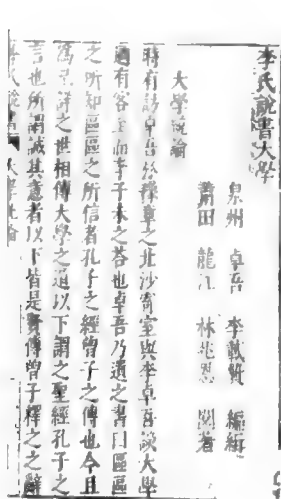 李氏說書大學
泉州 卓吾 李載贄 編緝
莆田 龍江 林兆恩 閱著
大學說論
時有訪卓吾於釋章之北沙寄室與李卓吾談大學
適有客至而李子未之答也卓吾乃遺之書曰區區
之所知區區之所信者孔子之經曾子之傳也今且
爲尋詩之世相傳大學之道以下謂之聖經孔子之
言也所謂誠其意者以下皆是賢傳曾子釋之之辭